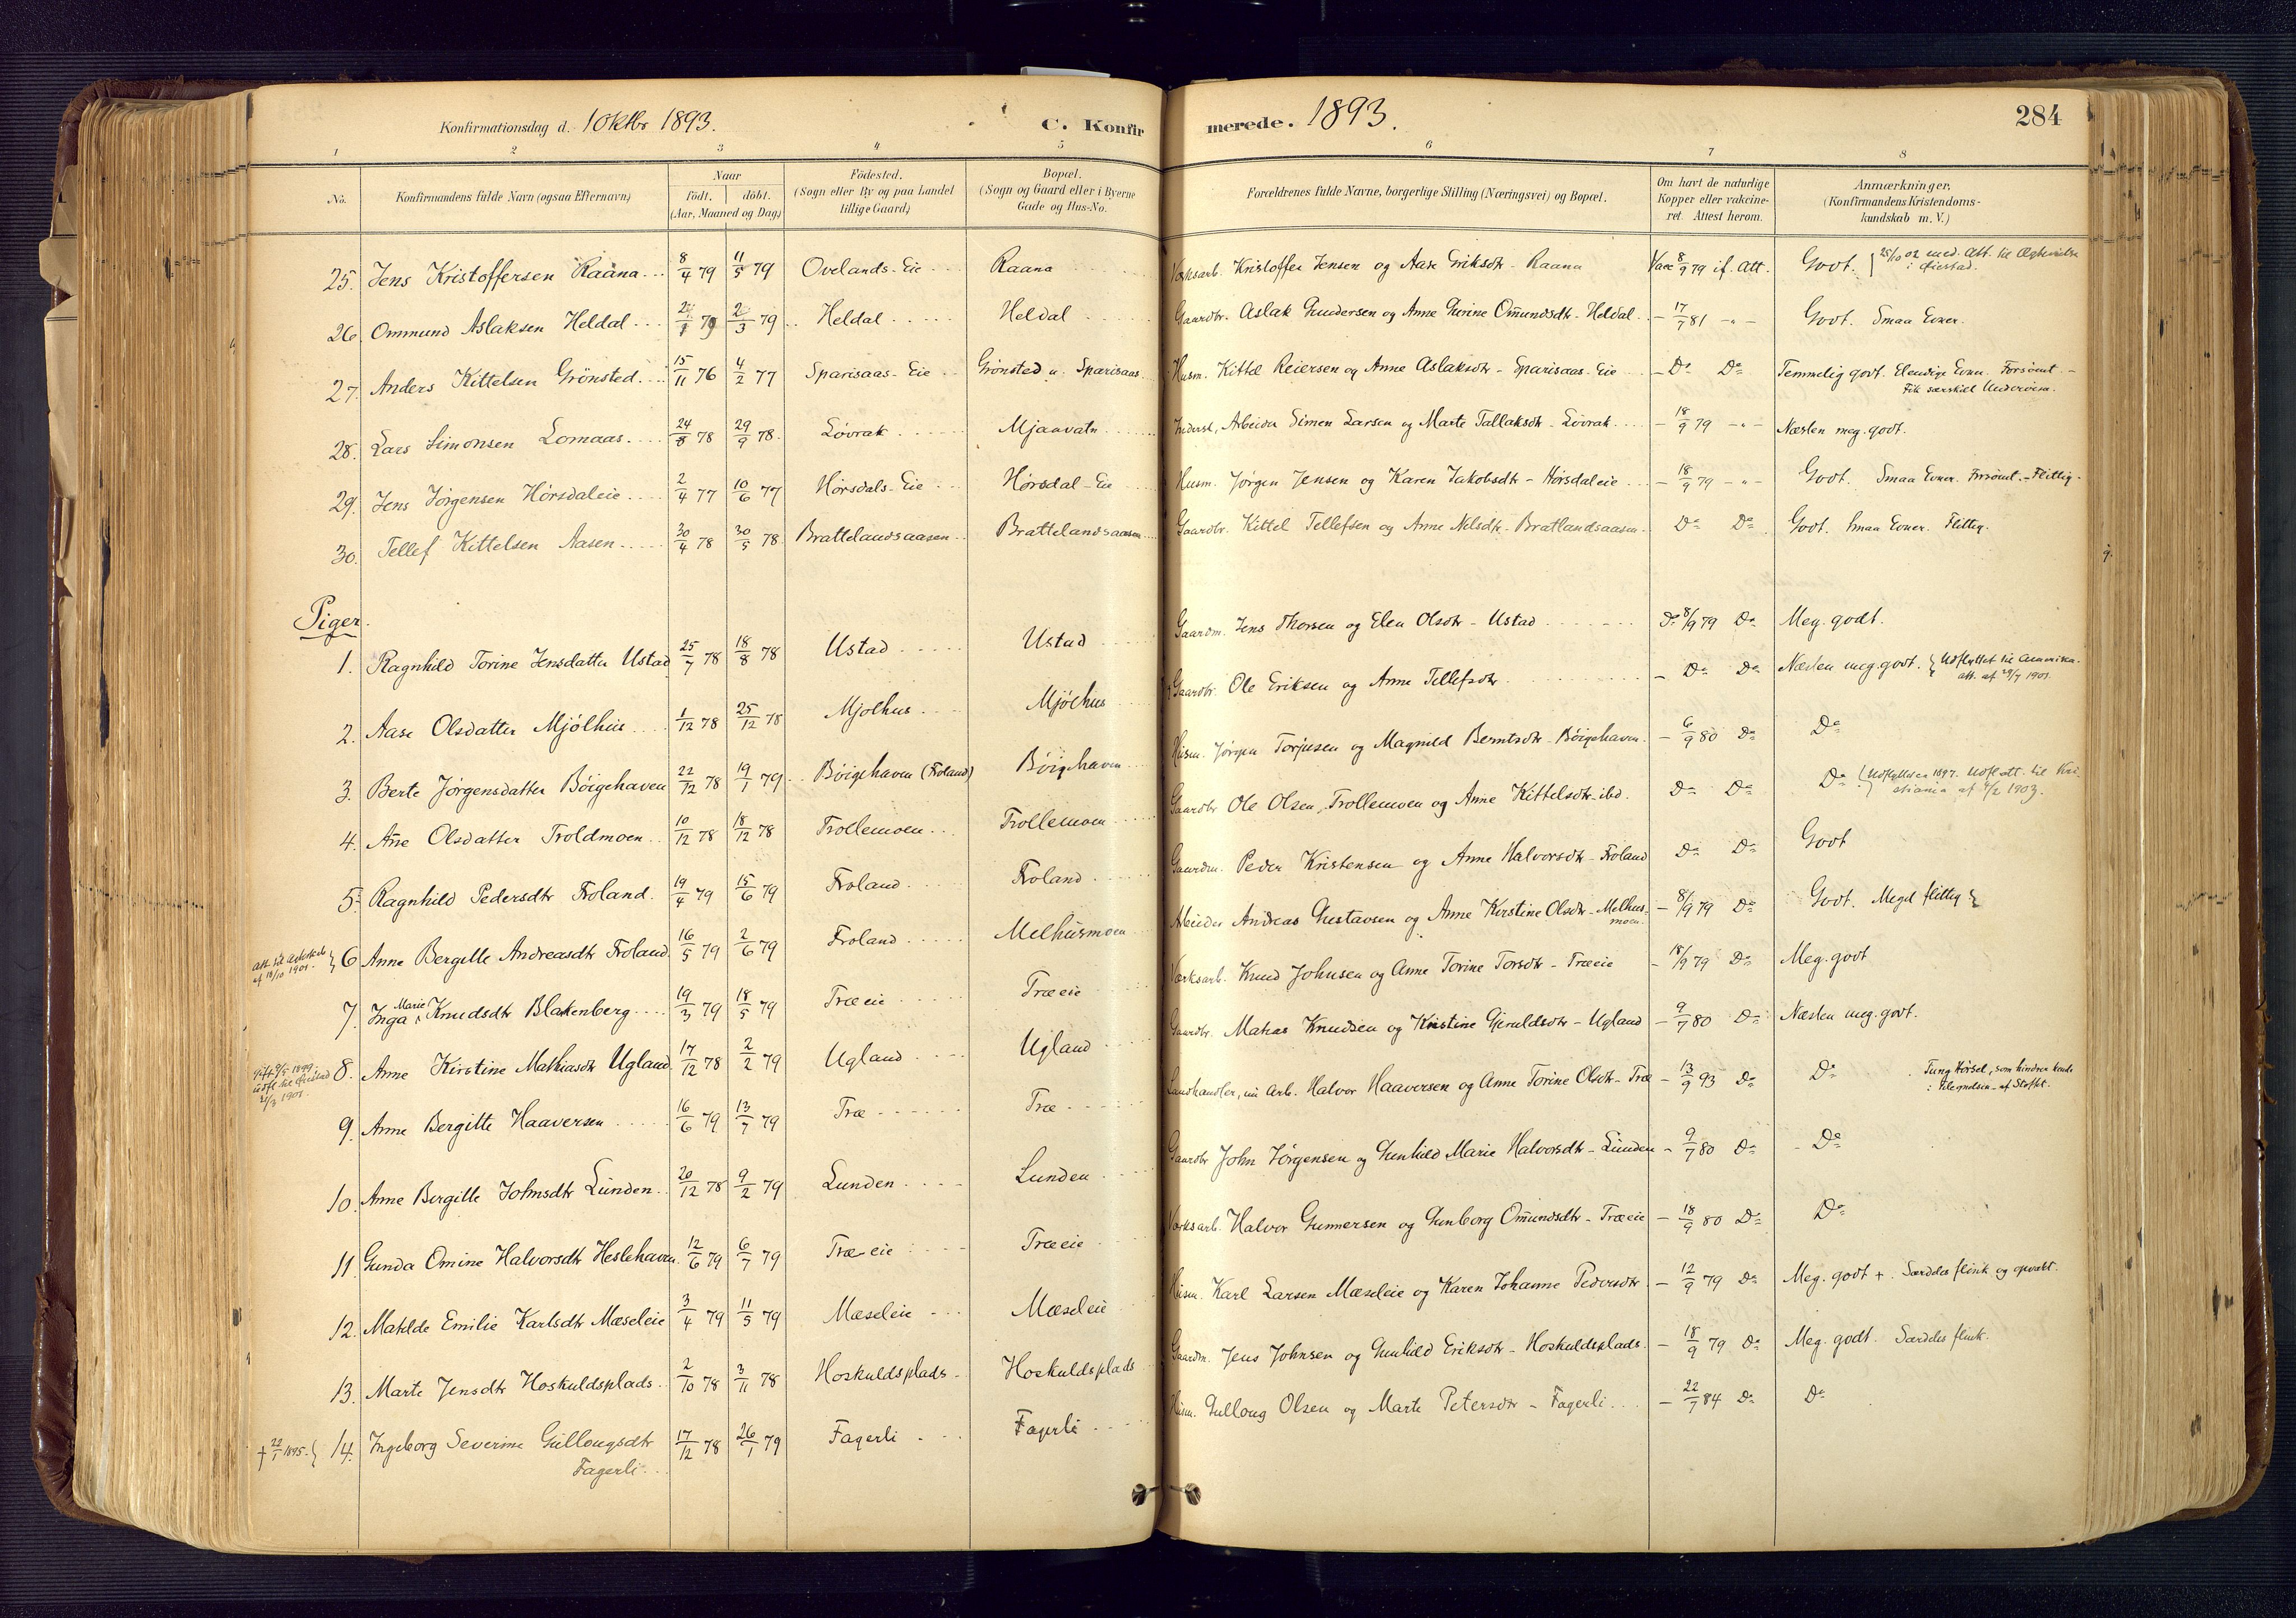 Konfirmationsdag d. 1 Oktbr 1893. C. Konfirmerede. 1893. 284
1 2 3 4 5 6 7 8
No. Konfirmandens fulde Navn (ogsaa Efternavn) Naar födt. döbt. (Aar, Maaned og Dag) Födested. (Sogn eller By og paa Landet tillige Gaard) Bopæl. (Sogn og Gaard eller i Byerne Gade og Hus-No. Forældrenes fulde Navne, borgerlige Stilling (Næringsvei) og Bopæl. Om havt de naturlige Kopper eller vakcineret. Attest herom. Anmærkninger. (Konfirmandens Kristendomskundskab m. V.)
25. Jens Kristoffersen Raana 8/4 79 11/5 79 Ovelands-Eie Raana Værksarb. Kristoffer Jensen og Aase Eriksdtr - Raana Vacc 8/9 79 if. Att. Godt. 25/10 02 med. Att. til Ægteskab i Øiestad.
26. Ommund Aslaksen Heldal 79 2/3 79 Heldal Heldal Gaardbr. Aslak Gundersen og Anne Gurine Omundsdtr - Heldal - 17/7 81 - " - Godt. Smaa Evner.
27. Anders Kittelsen Grönsted 15/11 76 4/2 77 Sparisaas-Eie Grönsted u. Sparisaas Husm. Kittel Reiersen og Anne Aslaksdtr - Sparisaas-Eie - Do Do Temmelig godt. Elendige Evner. Forsömt - Fik særskilt Undervisn.
28. Lars Simonsen Lomaas 24/8 78 29/9 78. Lövrak Mjaavatn Inderst, Arbeider Simen Larsen og Marte Tallaksdtr - Lövrak - 18/9 79 - " - Næsten meg. godt.
29. Jens Jörgensen Hörsdaleie 2/4 77 10/6 77 Hörsdals-Eie Hörsdal-Eie Husm. Jörgen Jensen og Karen Jakobsdtr - Hörsdaleie - 18/9 79 - " - Godt. Smaa Evner. Forsömt. - Flittig.
30. Tellef Kittelsen Aasen 30/4 78 30/5 78. Brattelandsaasen Brattelandsaasen Gaardbr. Kittel Tellefsen og Anne Nilsdtr - Bratlandsaasen - Do Do Godt. Smaa Evner. Flittig.
Piger.
1. Ragnhild Torine Jensdatter Ustad 25/7 78 18/8 78 Ustad Ustad Gaardm. Jens Thorsen og Elen Olsdtr - Ustad Do 8/9 79 Do Meg. godt.
2. Aase Olsdatter Mjölhus 1/12 78 25/12 78 Mjolhus Mjölhus Gaardbr. Ole Eriksen og Anne Tellefsdtr - Do Do Næsten meg. godt. Udflyttet til Amerika. att. af 29/7 1901.
3. Berte Jörgensdatter Böigehaven 22/12 78 19/1 79 Böigehaven (Froland) Böigehaven Husm. Jörgen Torjusen og Magnild Berntsdtr - Böigehaven - 6/9 80 Do Do
4. Ane Olsdatter Troldmoen 10/12 78 18/12 78 Trollemoen Trollemoen Gaardbr Ole Olsen Trollemoen og Anne Kittelsdtr - ibd. Do Do Do Udflyttet 1897. Udfl. att. til Kristiania af 1903.
5. Ragnhild Pedersdtr Froland 19/4 79 15/6 79 Froland Froland Gaardm. Peder Kristensen og Anne Halvorsdtr - Froland Do Do Godt
att. til ægteskab af 18/10 1901. 6 Anne Bergitte Andreasdtr Froland 16/5 79 2/6 79 Froland Melhusmoen Arbeider Andreas Gustavsen og Anne Kirstine Olsdtr - Melhusmoen - 8/9 79 Do Godt. Meget flittig
7. Inga Marie Knudsdtr Blakenberg 19/3 79 18/5 79 Træeie Træeie Værksarb. Knud Johnsen og Anne Torine Torsdtr - Træeie - 18/9 79 Do Meg. godt
Gift 1899. udfl. til Øiestad 2/3 1901. 8. Anne Kirstine Mathiasdtr Ugland 17/12 78 2/2 79 Ugland Ugland Gaardbr. Matias Knudsen og Kristine Gjeruldsdtr - Ugland - 9/7 80 Do Næsten meg. godt.
9. Anne Bergitte Haaversen 16/6 79 13/7 79 Træ Træ Landhandler, nu Arb. Halvor Haaversen og Anne Torine Olsdtr - Træ - 13/9 93 Do Do Tung Hörsel, som hindrer hende i Tilegnelsen af Stoffet.
10. Anne Bergitte Johnsdtr Lunden 20/12 78 9/2 79 Lunden Lunden Gaardbr John Jörgensen og Gunhild Marie Halvorsdtr - Lunden - 9/7 80 Do Do
11. Gunda Omine Halvorsdtr Heslehaven 12/6 79 6/7 79 Træeie Træeie Værksarb. Halvor Gunnersen og Gunborg Omundsdtr - Træeie - 18/9 80 Do Do
12. Matilde Emilie Karlsdtr Mæseleie 3/4 79 11/5 79 Mæseleie Mæseleie Husm. Karl Larsen Mæseleie og Karen Johanne Pedersdtr - 12/9 79 Do Meg. godt +. Særdeles flink og opvakt.
13. Marte Jensdtr Hoskuldsplads 2/10 78 3/11 78 Hoskuldsplads Hoskuldsplads Gaardm. Jens Johnsen og Gunhild Eriksdtr - Hoskuldsplads - 18/9 79 Do Meg. godt. Særdeles flink.
† 22/1 1895. 14. Ingeborg Severine Gullougsdtr Fagerli 17/12 78 26/1 79 Fagerli Fagerli Husm. Gulloug Olsen og Marte Petersdtr - Fagerli - 22/7 84 Do Do